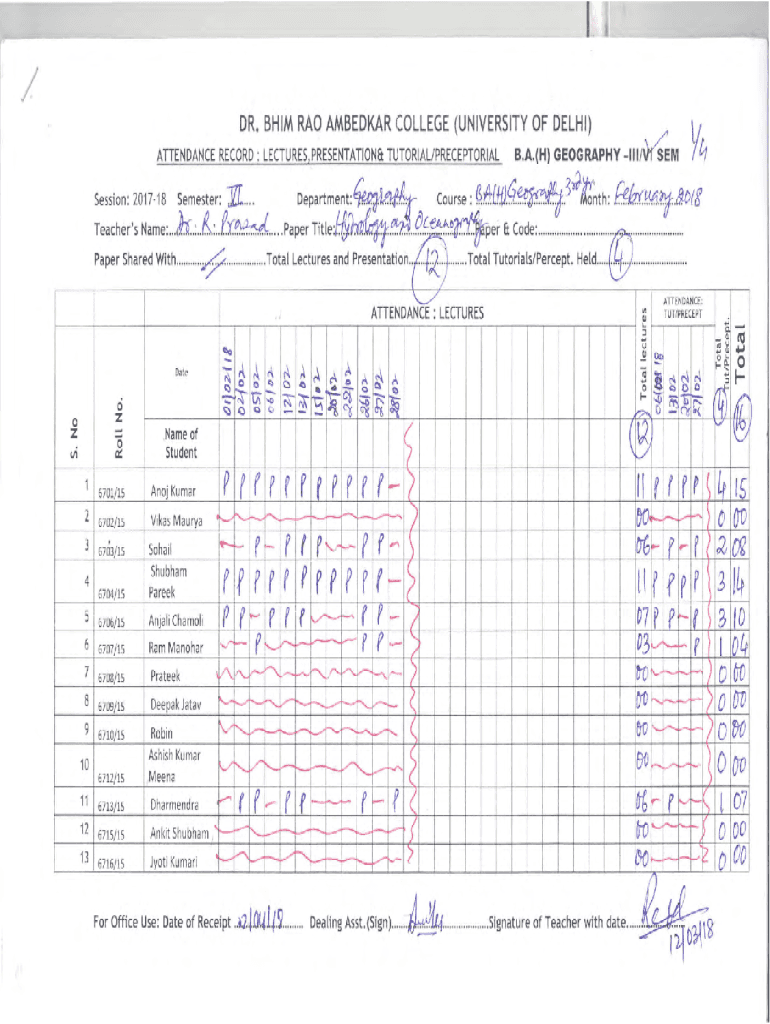 DR. BHIM RAO AMBEDKAR COLLEGE (UNIVERSITY OF DELHI)
ATTENDANCE RECORD : LECTURES,PRESENTATION& TUTORIAL/PRECEPTORIAL B.A.(H) GEOGRAPHY –III/VI SEM 1/4
Session: 2017-18 Semester: VI Department: Geography Course : BA(H)Geography 3rd yr Month: February 2018
Teacher's Name: Dr. R. Prasad Paper Title: Hydrology and Oceanography Paper & Code:
Paper Shared With Total Lectures and Presentation 12 Total Tutorials/Percept. Held 4
ATTENDANCE : LECTURES Total lectures ATTENDANCE: TUT/PRECEPT Total Tut/Precept. Total
S. No Roll No. Date 01/02/18 02/02 05/02 06/02 12/02 13/02 15/02 20/02 26/02 27/02 28/02 13/02 20/02 27/02
Name of Student 12 4 16
1 6701/15 Anoj Kumar P P P P P P P P P P P – 11 P P P P 4 15
2 6702/15 Vikas Maurya 00 0 00
3 6703/15 Sohail P – P P P P P – 06 – P – P 2 08
4 6704/15 Shubham Pareek P P P P P P P P P P P – 11 P P P P 3 14
5 6706/15 Anjali Chamoli P P – P P P P P – 07 P P – P 3 10
6 6707/15 Ram Manohar – P P P – 03 P 1 04
7 6708/15 Prateek 00 0 00
8 6709/15 Deepak Jatav 00 0 00
9 6710/15 Robin 00 0 00
10 6712/15 Ashish Kumar Meena 00 0 00
11 6713/15 Dharmendra – P P – P P P – P 06 – P 1 07
12 6715/15 Ankit Shubham 00 0 00
13 6716/15 Jyoti Kumari 00 0 00
For Office Use: Date of Receipt 12/04/18 Dealing Asst.(Sign) Signature of Teacher with date
12/03/18